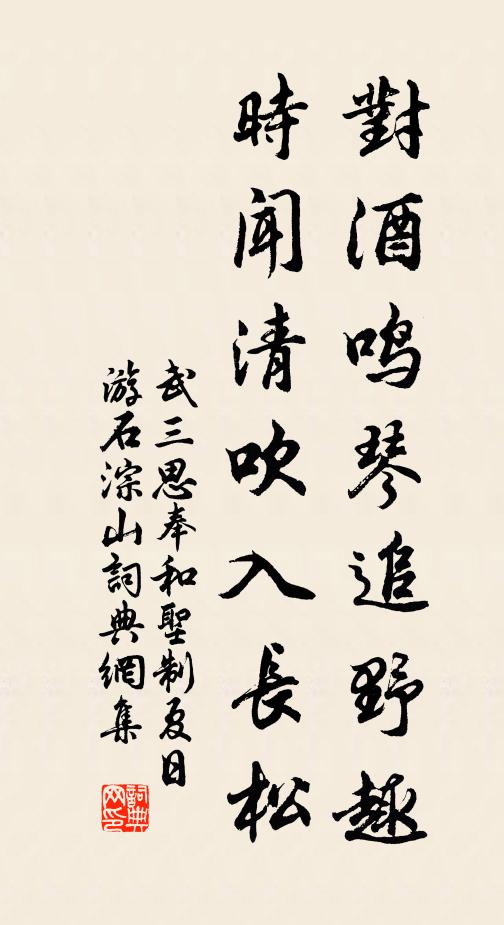 對酒鸣琴追野趣
時闻清吹入長松
武三思奉和聖制夏日
游石淙山詞典網集
詞典网印